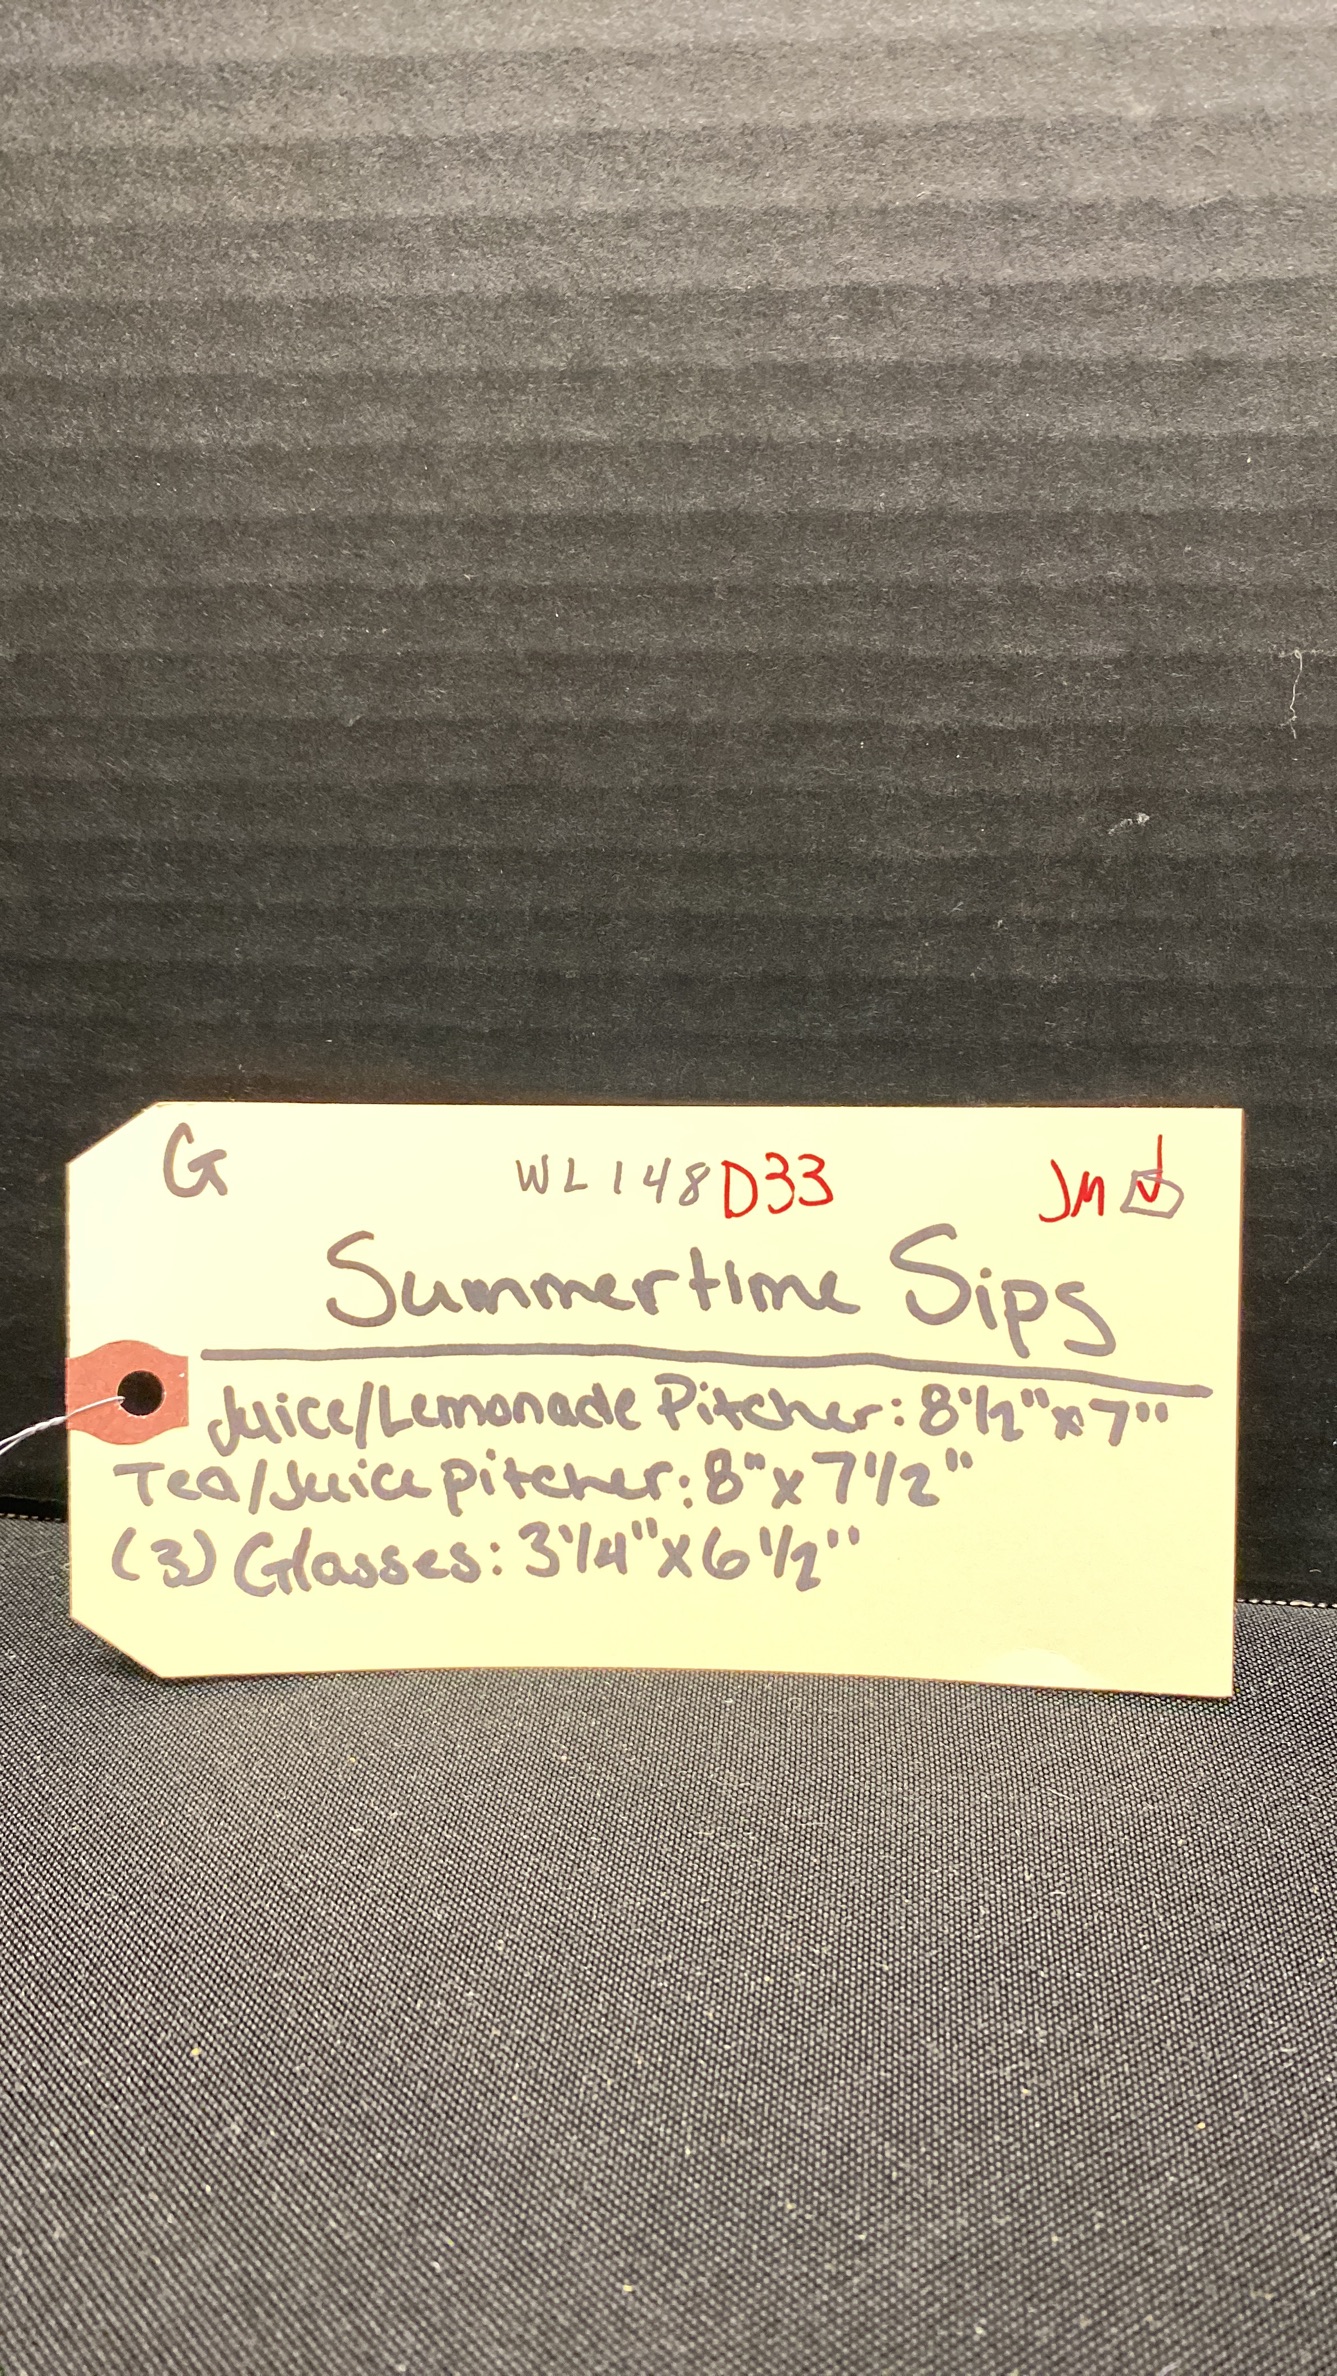 G WL148 D33 JM ☑
Summertime Sips
Juice/Lemonade Pitcher: 8 1/2" x 7"
Tea/Juice pitcher: 8" x 7 1/2"
(3) Glasses: 3 1/4" x 6 1/2"